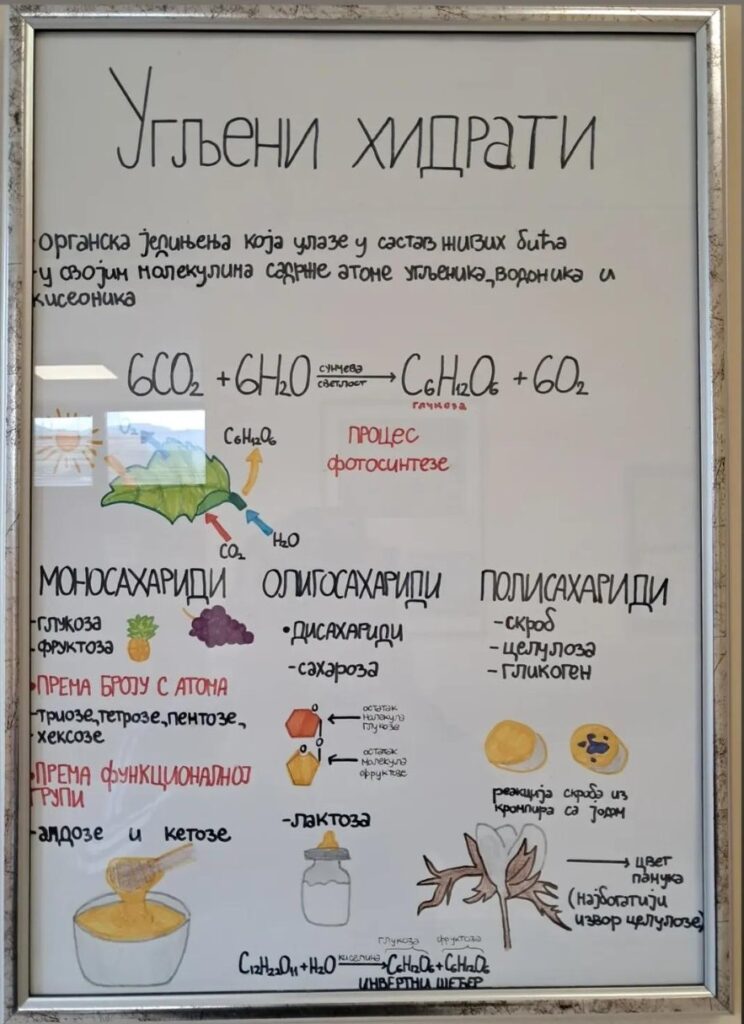 Угљени хидрати
-органска једињења која улазе у састав живих бића
-у својим молекулима садрже атоме угљеника, водоника и
кисеоника
6CO₂ + 6H₂O сунчева светлост → C₆H₁₂O₆ + 6O₂
глукоза
O₂
C₆H₁₂O₆
CO₂
H₂O
ПРОЦЕС
ФОТОСИНТЕЗЕ
МОНОСАХАРИДИ
-глукоза
-фруктоза
•ПРЕМА БРОЈУ C АТОМА
-триозе, тетрозе, пентозе,
хексозе
•ПРЕМА ФУНКЦИОНАЛНОЈ
ГРУПИ
-алдозе и кетозе
ОЛИГОСАХАРИДИ
•ДИСАХАРИДИ
-сахароза
O
остатак
молекула
глукозе
O
O
остатак
молекула
фруктозе
-лактоза
ПОЛИСАХАРИДИ
-скроб
-целулоза
-гликоген
реакција скроба из
кромпира са јодом
цвет
памука
(најбогатији
извор целулозе)
глукоза фруктоза
C₁₂H₂₂O₁₁ + H₂O киселина → C₆H₁₂O₆ + C₆H₁₂O₆
ИНВЕРТНИ ШЕЋЕР